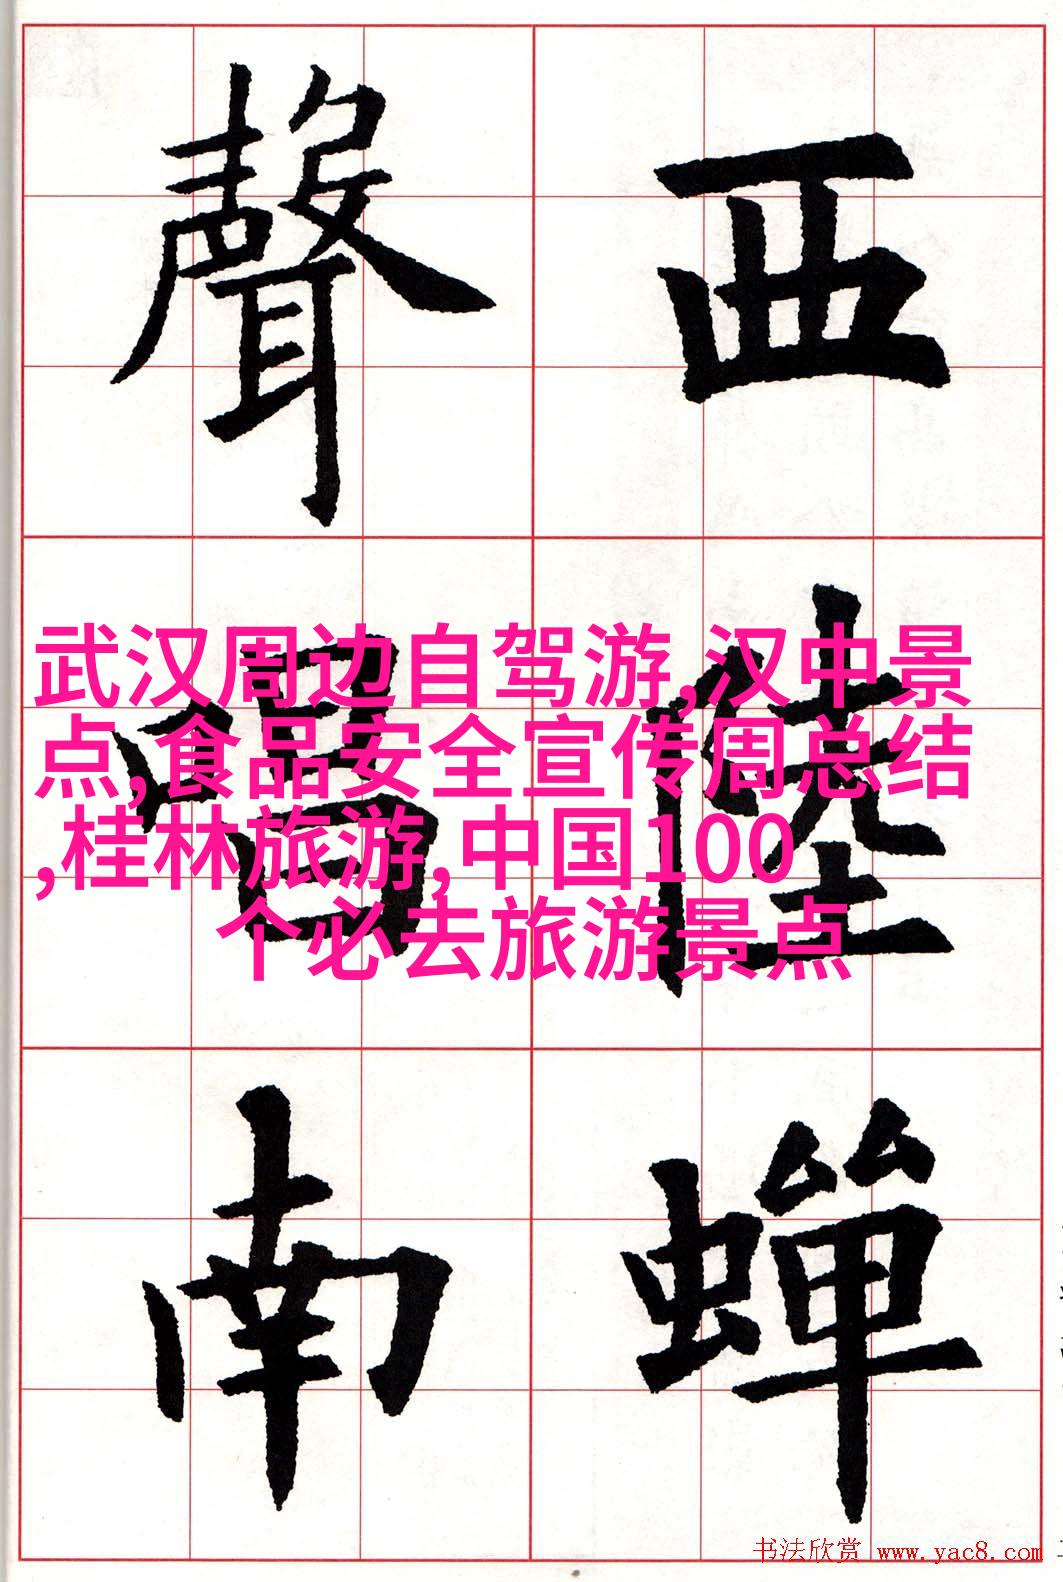 西陸蟬
聲唱南
武汉周边自驾游,汉中景
点,食品安全宣传周总结
,桂林旅游,中国100
个必去旅游景点
书法欣赏 www.yac8.com